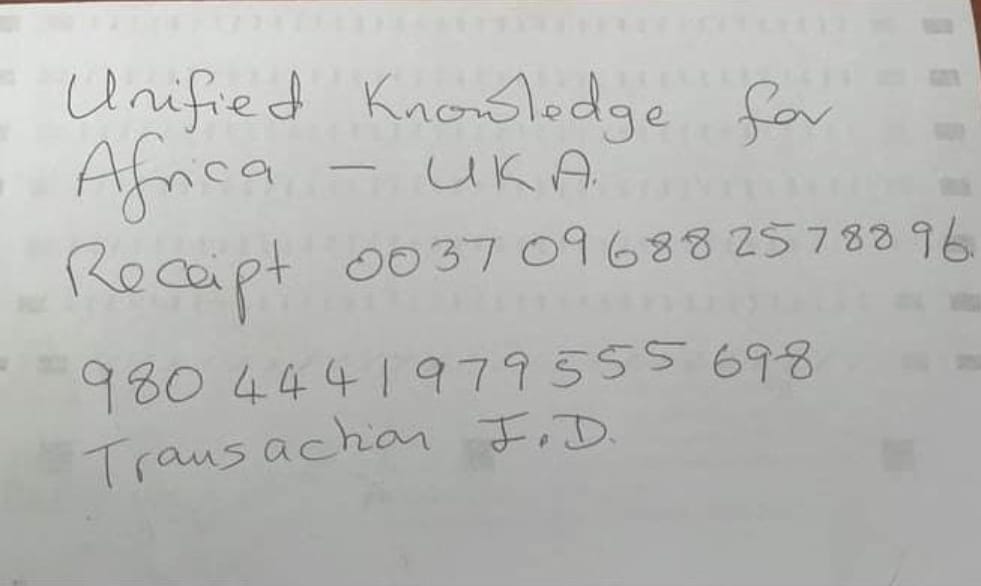 Unified Knowledge for
Africa - UKA.
Receipt 0037 096882578896.
980 4441979555698
Transaction I.D.